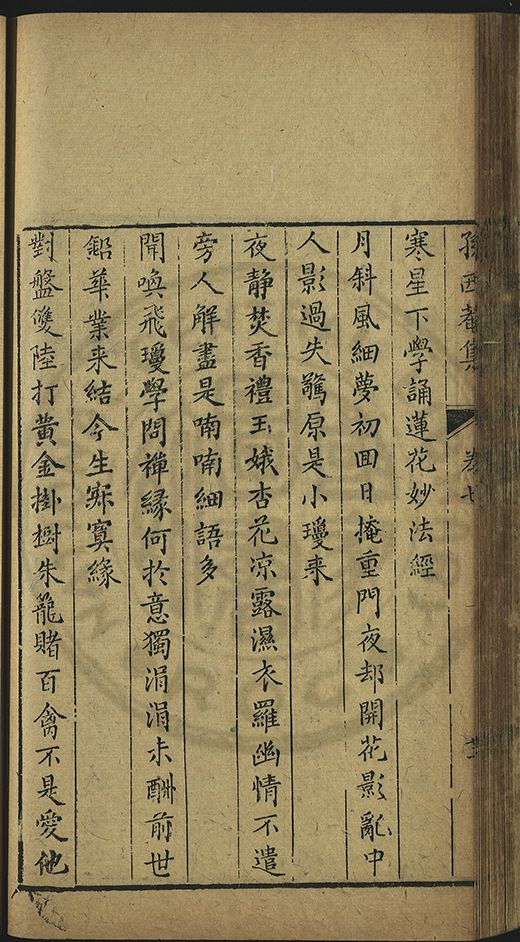 孫西菴集 卷七
寒星下學誦蓮花妙法經
月斜風細夢初回日掩重門夜却開花影亂中
人影過失驚原是小瓊来
夜静焚香禮玉娥杏花凉露濕衣羅幽情不遣
旁人解盡是喃喃細語多
開喚飛瓊學問禪緣何於意獨涓涓未酬前世
鉛華業来結今生寂寞緣
對盤雙陸打黃金掛樹朱籠賭百禽不是愛他